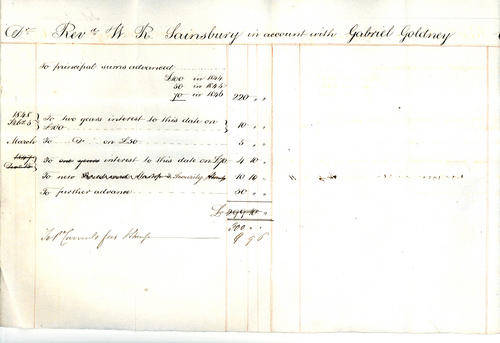 Dr Revd W R Sainsbury in account with Gabriel Goldney
To principal sums advanced
£100 in 1844
50 in 1845
70 in 1846 220 " "
1848
To two years interest to this date on
£100 10 " "
March To Do on £50 5 " "
1847
To one years interest to this date on £70 4 10 "
To new Security Stamp 10 10 "
To further advance 50 " "
£ 10 "
300 " "
9 9 6